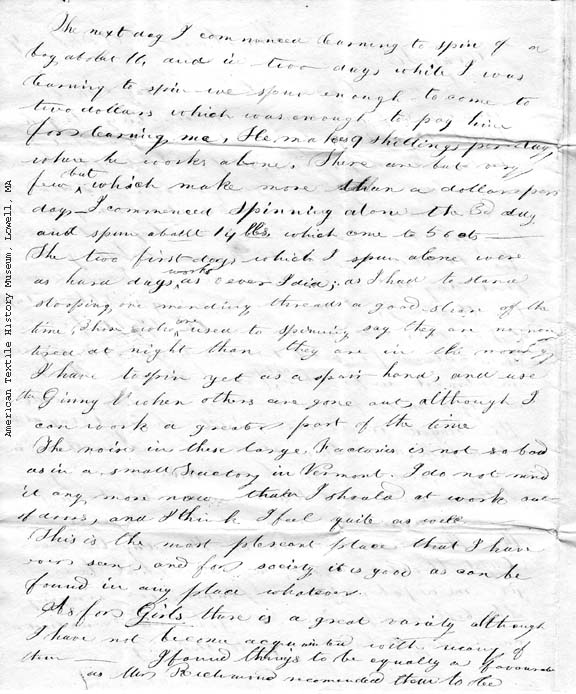 The next day I commenced learning to spin of a
boy, about 16, and in two days while I was
learning to spin we spun enough to come to
two dollars which was enough to pay him
for learning me, He makes 9 shillings per day,
where he works alone, There are but very
few but which make more than a dollar per
day — I commenced spinning alone the 3d day
and spun about 14 lbs, which come to 56 cts —
The two first days which I spun alone were
as hard days works as ever I did; as I had to stand
stooping, one mending threads a good share of the
time, those who are used to spinning say they are no more
tired at night than they are in the morning,
I have to spin yet as a spair hand, and use
the Ginny when others are gone out, although I
can work a greater part of the time
The noise in these large Factories is not so bad
as in a small Factory in Vermont. I do not mind
it any more now than I should at work out
of doors, and I think I feel quite as well
This is the most pleasant place that I have
ever seen, and for society it is good as can be
found in any place whatever
As for Girls there is a great variety although
I have not become acquainted with many of
them — I found things to be equally as favourable
as Mrs Richmond recomended them to be
American Textile History Museum, Lowell, MA